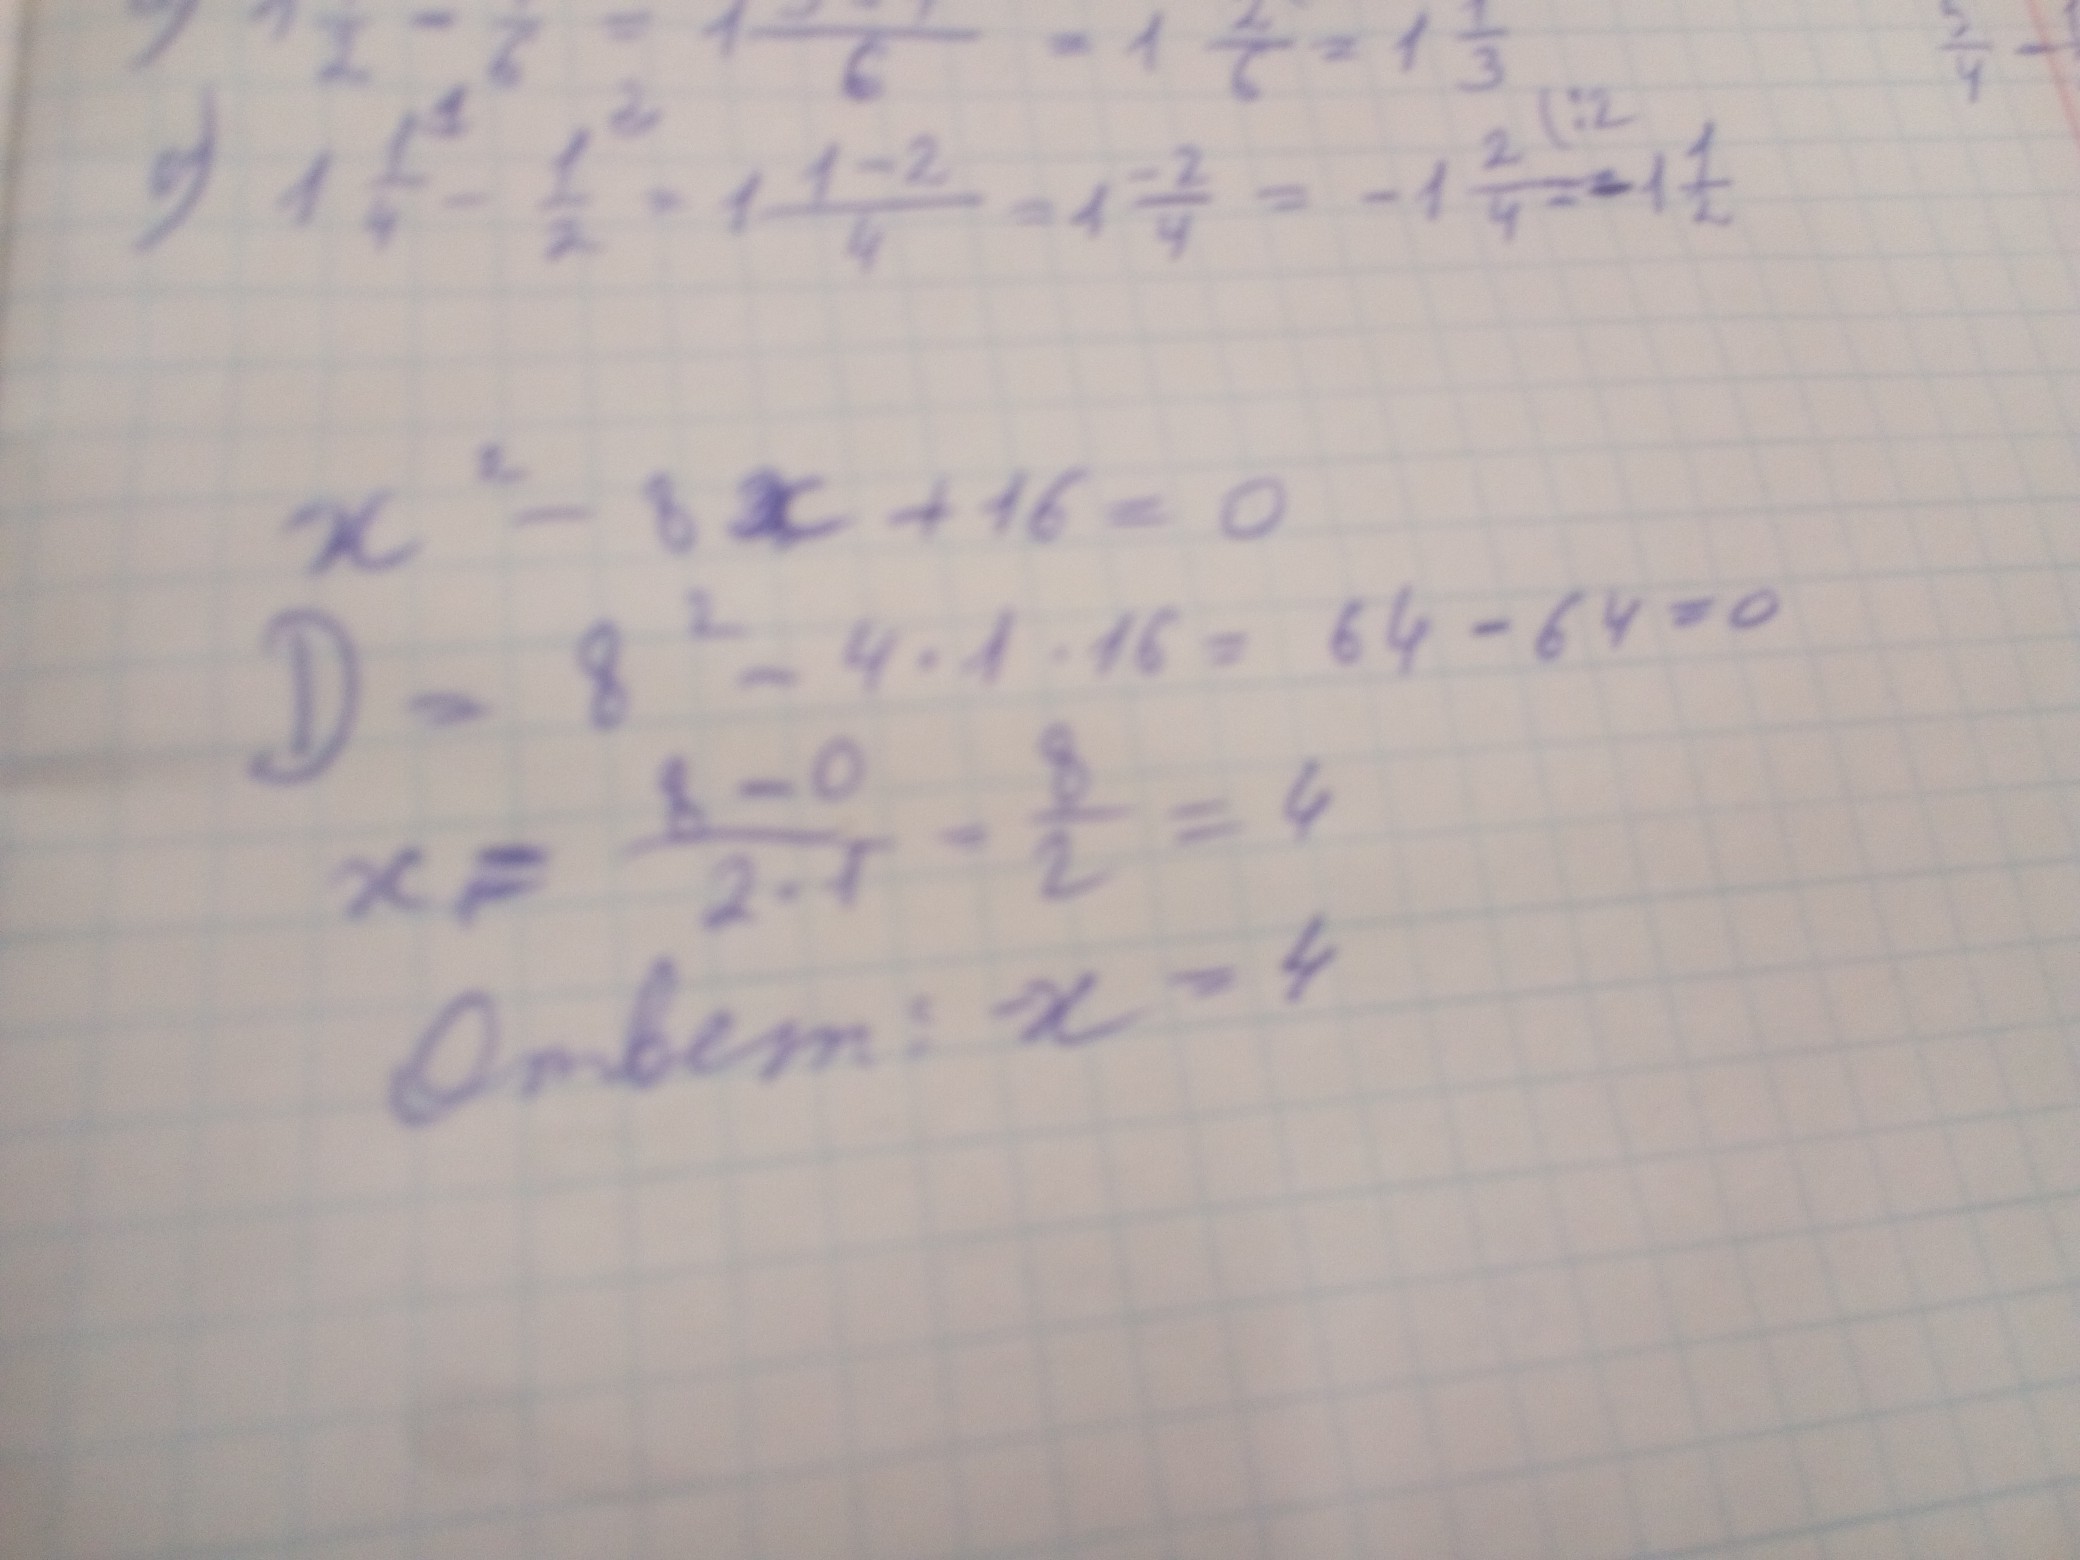 1 1/2 - 1/6 = 1 /6 = 1 2/6 = 1 1/3
1 1/4 ¹ - 1/2 ² = 1 (1-2)/4 = 1 -2/4 = -1 2/4 (:2 = -1 1/2
5/4 -
x² - 8x + 16 = 0
D = 8² - 4·1·16 = 64 - 64 = 0
x = (8-0)/(2·1) = 8/2 = 4
Ответ: x = 4